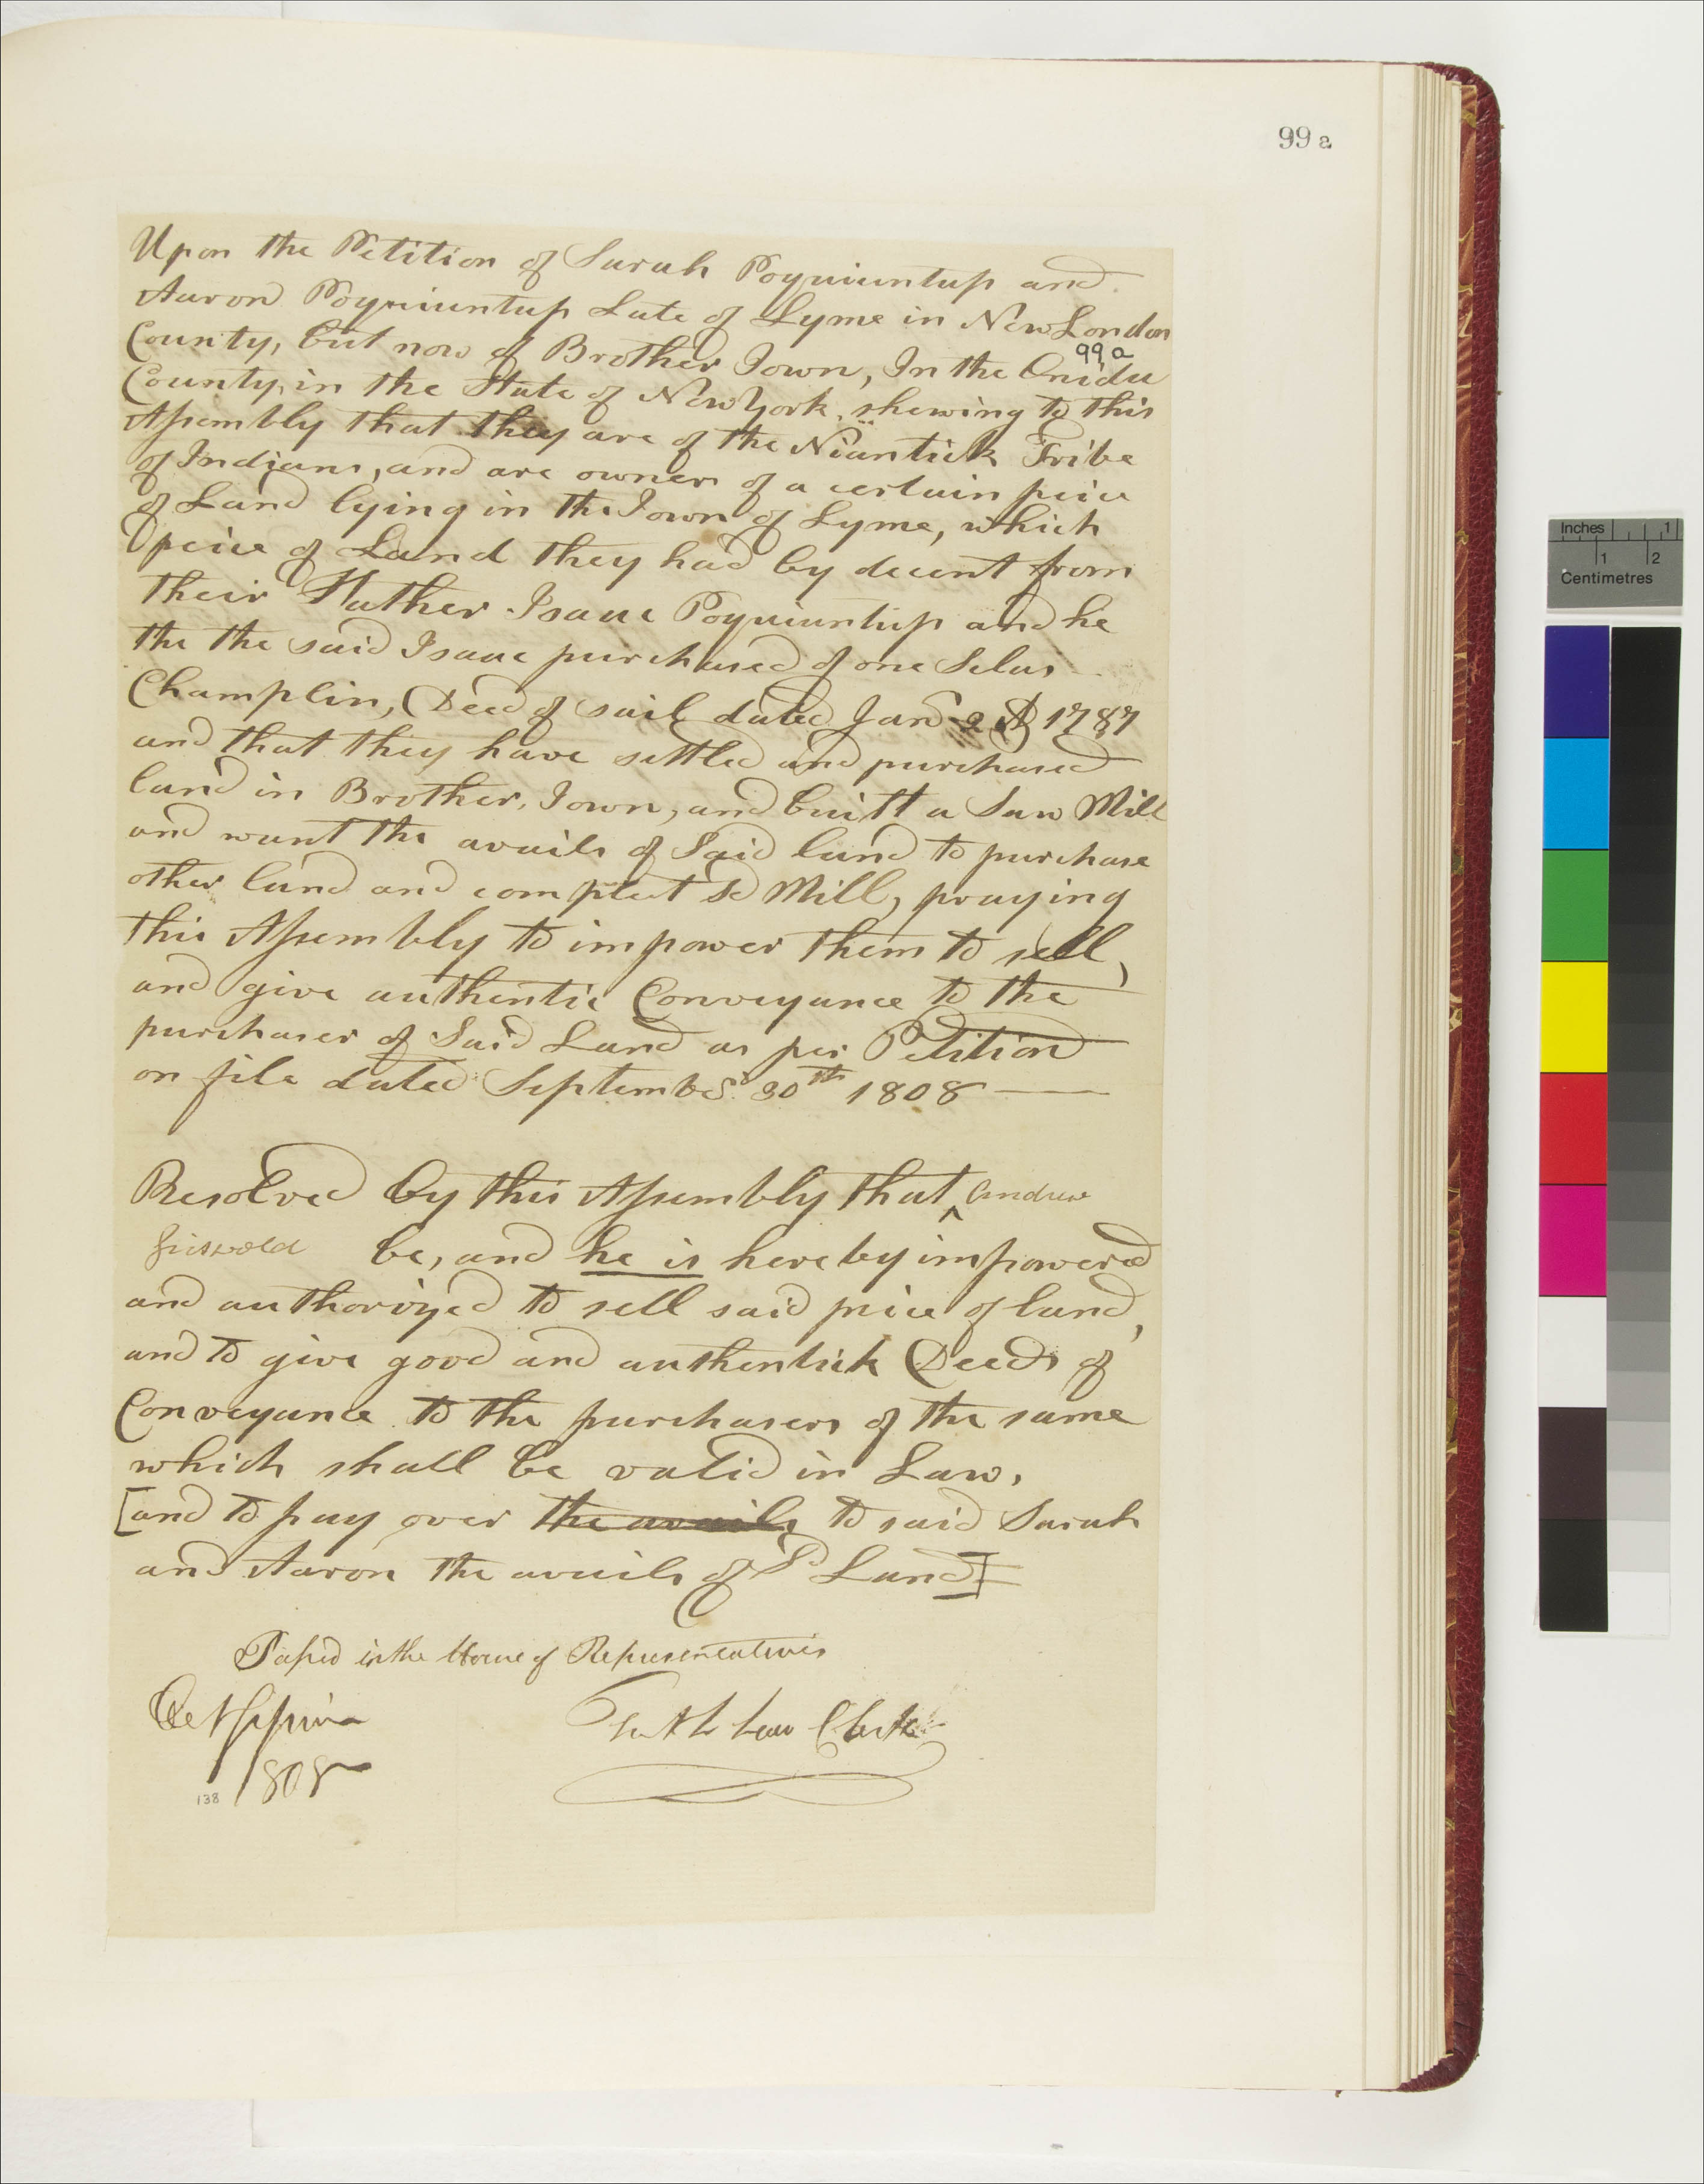 99 a
Upon the Petition of Sarah Poquiuntup and
Aaron Poquiuntup Late of Lyme in New London
County, but now of Brother Town, In the Onida
99 a
County, in the State of New York, shewing to this
Assembly that they are of the Niantick Tribe
of Indians, and are owners of a certain peice
of Land lying in the Town of Lyme, which
peice of Land they had by decent from
their Father Isaac Poquiuntup and he
the the said Isaac purchased of one Selas
Champlin, Deed of sail dated Janr 2 AD 1787
and that they have settled and purchased
land in Brother, Town, and built a Saw Mill
and want the avails of Said land to purchase
other land and compleat sd Mill, praying
this Assembly to impower them to sell,
and give authentic Conveyance to the
purchaser of Said Land as per Petition
on file dated Septembr 30th 1808
Resolved by this Assembly that ^ Andrew
Griswold be, and he is hereby impowered
and authorized to sell said peice of land,
and to give good and authentick Deeds of
Conveyance to the purchasers of the same
which shall be valid in Law,
[and to pay over the avails to said Sarah
and Aaron the avails of Sd Land]
Passed in the House of Representatives
Oct Session
1808
Clerk
138
Inches 1
1 2
Centimetres